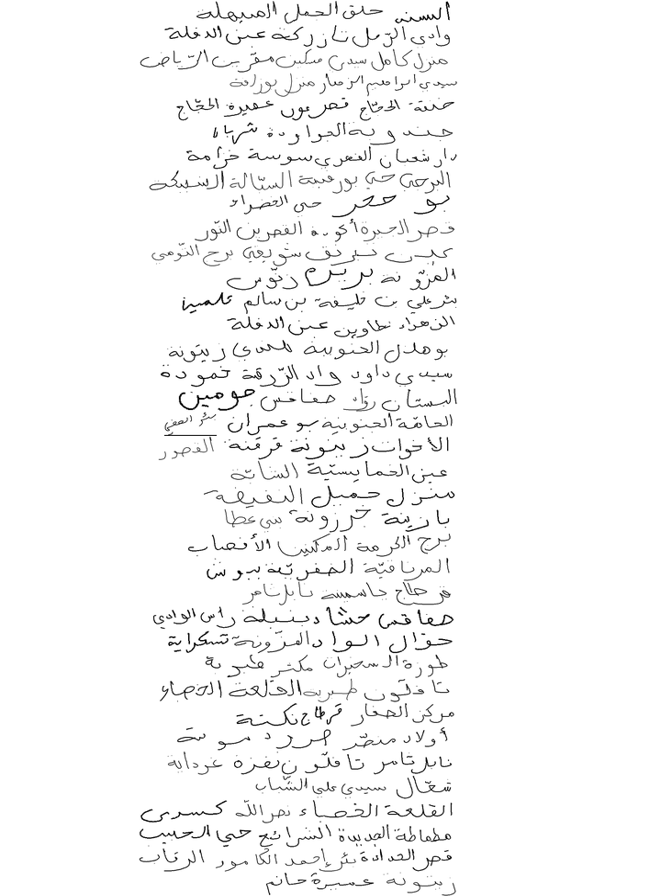 البسته حلق الجمل المنيهلة
وادي الرمل تازركة عين الدفلة
منزل كامل سيدي مسكين مقرين الرّياض
سيدي ابراهيم الزهار منزل بورافة
خنقة الحجّاج قصرعون عقيرة الحجّاج
جندوبة الجواودة شرباك
دار شعبان الفهري سوسة خزامة
البرجي حي بورقيبة الستالة الشبيكة
بو حجر حي الخضراء
قصر الجيرة أكودة القصرين النّور
شويغي برج التّومي
المزّونة بريرم زنّوش
بئر علي بن خليفة بن سالم علمين
الزهراء تطاوين عين الدفلة
بوهلال الجنوبية زيتونة
سيدي داود واد الزّرقة ثمودة
البستان رواد صفاقس جومين
الحامّة الجنوبية بوعمران
الأخوات زيتونة قرقنة القصور
عين الخمايسيّة الشابّة
منزل جميل النفيضة
بازينة جرزونة سي عطا
برج الكرمة المكنين الأنصاب
المرناقيّة الصخريّة ببوش
حلاج جاسمينة نابل ثامر
صفاقس حشاد نبيلة راس الوادي
حوّال الواد المزونة تسكراية
السخيرات مكثر طبربة
تافلّون طبربة القلعة الخصباء
مركز الصفار قرطاج نكنة
أولاد منصّر
نابل ثامر تافلّون نفزة غرداية
شعّال سيدي علي الشّباب
القلعة الخصباء نصر الله كسرى
مطماطة الجديدة الشرائع حي الحبيب
قصر الحدادة بئر إحمد الكامور الرقاب
زيتونة عميرة حاتم